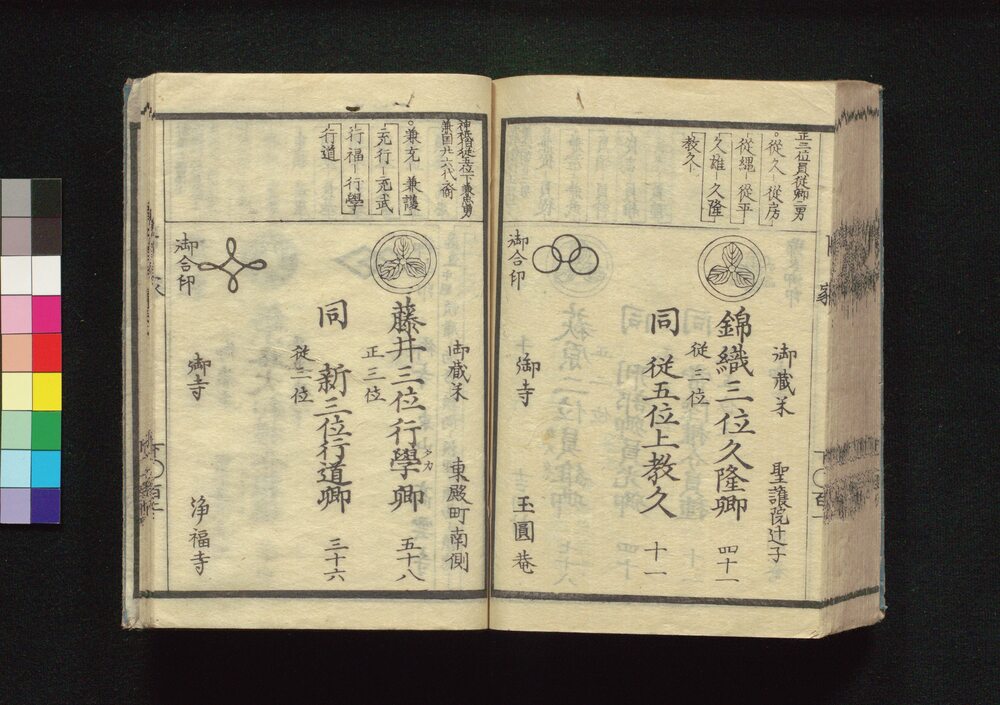 正三位員従卿二男
従久 従房
従縄 従平
久雄 久隆
教久
御蔵米 聖護院辻子
錦織三位久隆卿 四十一
従三位
同 従五位上教久 十一
御合印
御寺 玉圓菴
兼充 兼護
充行 充武
行福 行學
行道
御蔵米 東殿町南側
藤井三位行學卿 五十八
タカ
正三位
同 新三位行道卿 三十六
従三位
御合印
御寺 浄福寺